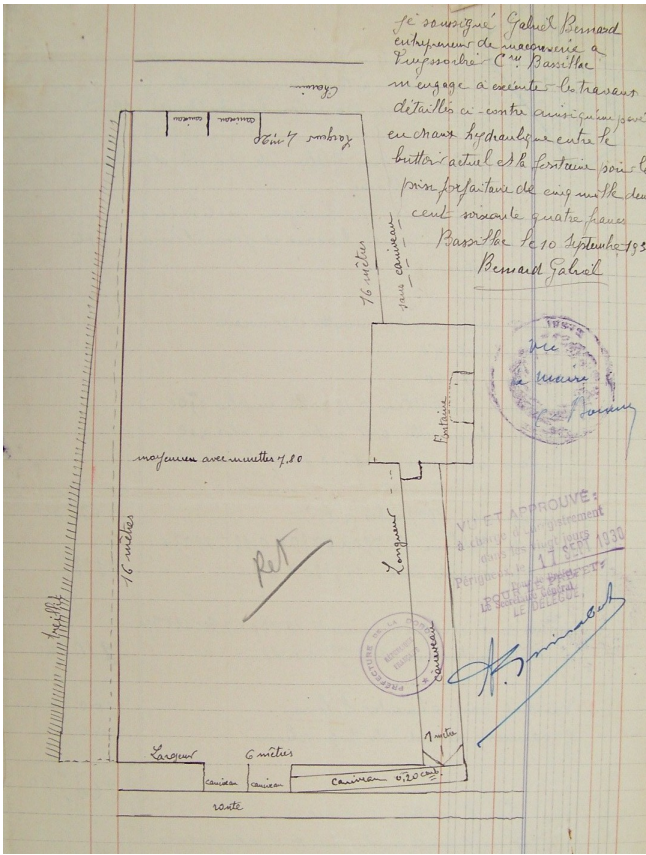 Je soussigné Gabriel Bernard
entrepreneur de maçonnerie à
Puyssorbié Cne Bassillac
m'engage à exécuter les travaux
détaillés ci-contre ainsi qu'une pavé
en chaux hydraulique entre le
buttoir actuel et la fontaine pour le
prix forfaitaire de cinq mille deux
cent soixante quatre francs
Bassillac le 10 Septembre 193
Bernard Gabriel
Chemin
caniveau
caniveau
Largeur 4m20
16 mètres
sans caniveau
Fontaine
Vu
le maire
moyenne avec murettes 7,80
16 mètres
Longueur
caniveau
treillis
Ret
VU ET APPROUVÉ :
à charge d'enregistrement
dans les vingt jours
Périgueux, le 17 SEPT 1930
POUR LE PRÉFET
Le Secrétaire Général
LE DÉLÉGUÉ,
PRÉFECTURE DE LA DORDOGNE
1 mètre
Largeur 6 mètres
caniveau
caniveau
caniveau 0,20 cent.
route